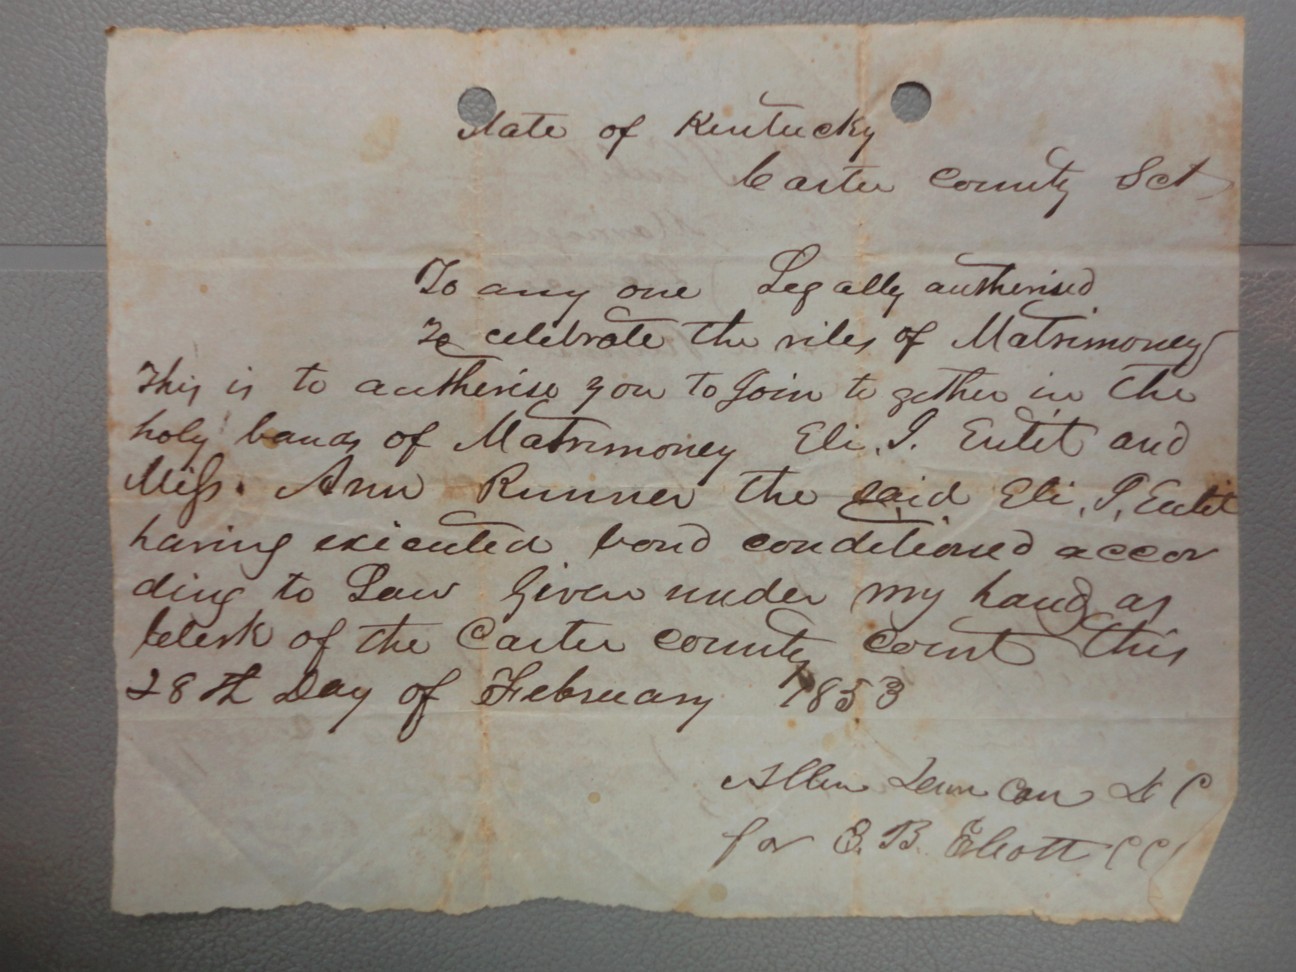 State of Kentucky
Carter County Sct
To any one Legally autherised
To celebrate the rites of Matrimoney
This is to autherise you to Join to gether in the
holy bands of Matrimoney Eli. I. Eulit and
Miss. Ann Runner the said Eli. I. Eulit
having executed bond conditioned accor
ding to Law Given under my hand as
Clerk of the Carter county court this
28th Day of February 1853
Allen Duncan D C
for G. B. Elliott CCC